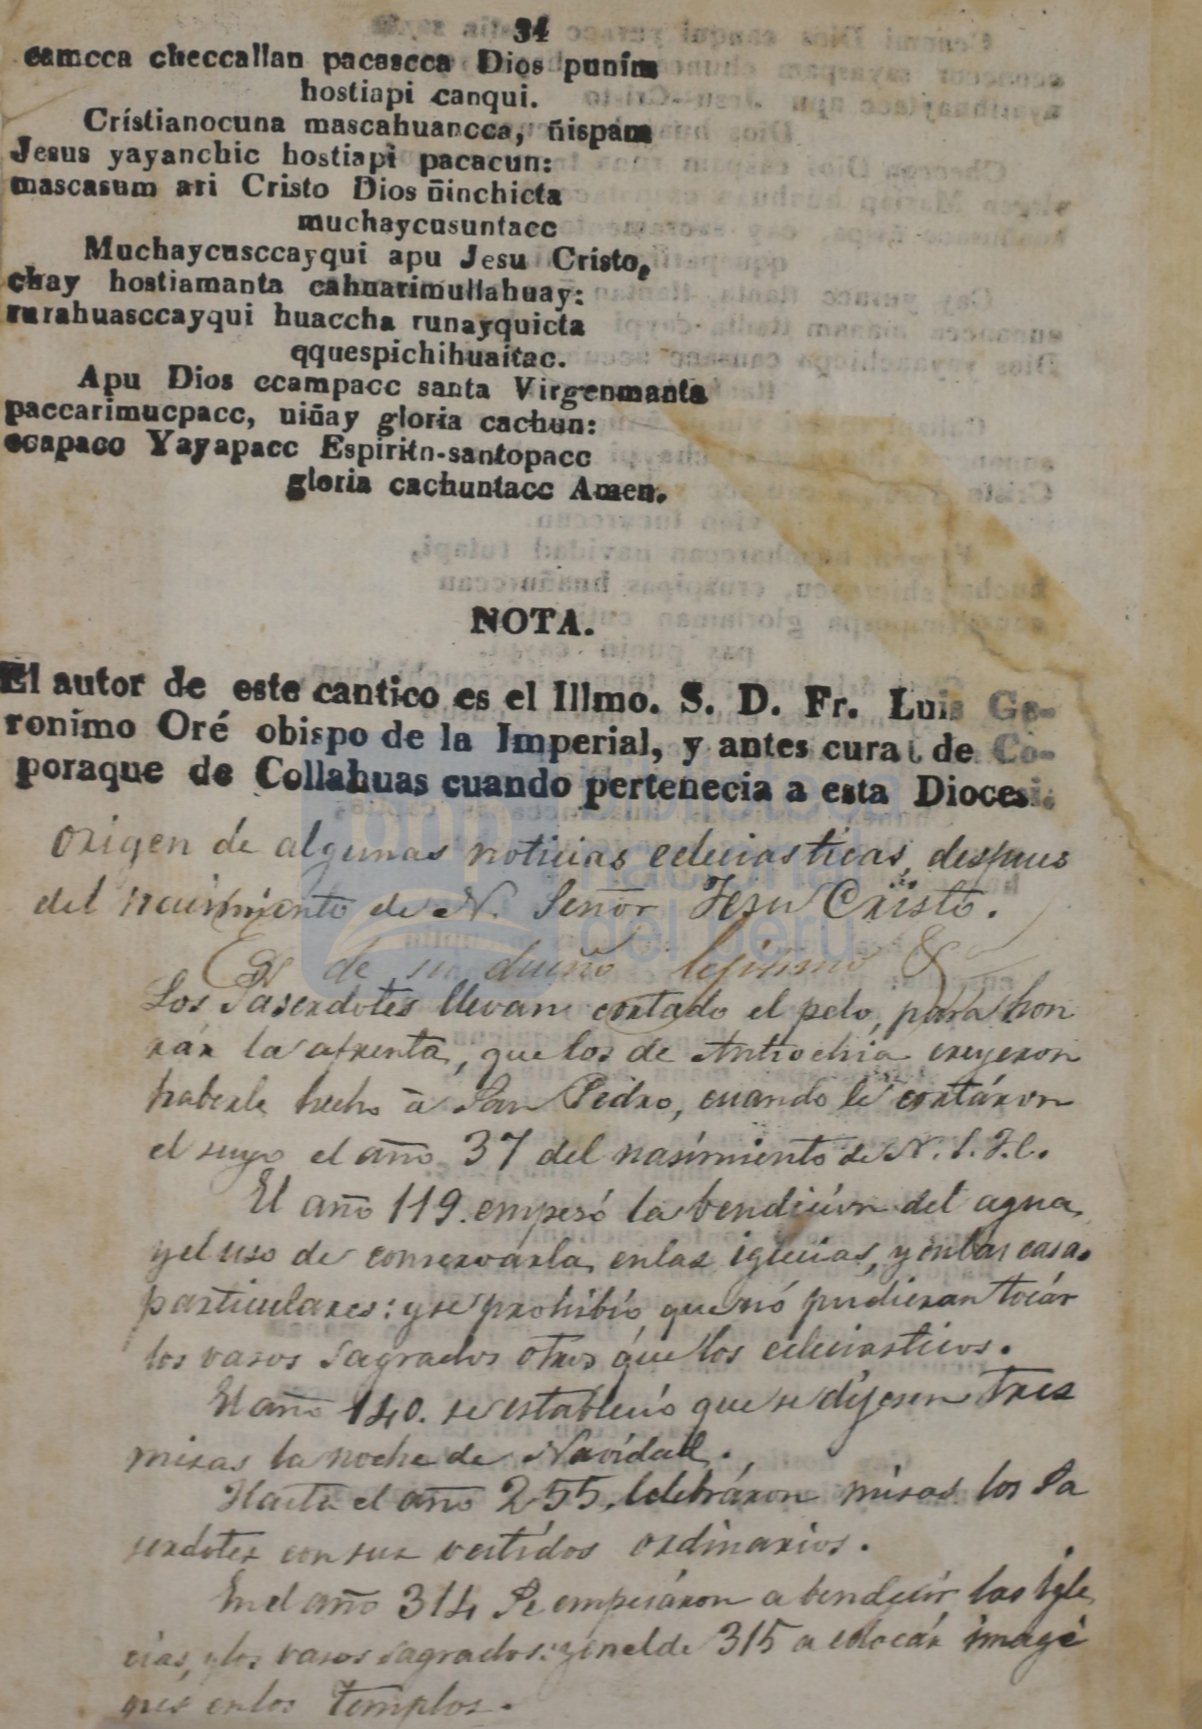 34
camcca checcallan pacascca Dios puním
hostiapi canqui.
Crístianocuna mascahuancca, ñispam
Jesus yayanchic hostiapi pacacun:
mascasum ari Cristo Dios ñinchicta
muchaycusuntacc
Muchaycusccayqui apu Jesu Cristo,
chay hostiamanta cahuarimullahuay:
rurahuasccayqui huaccha runayquicta
qquespichihuaitac.
Apu Dios ccampacc santa Virgenmanta
paccarimucpacc, uiñay gloria cachun:
ccapaco Yayapacc Espiritn-santopacc
gloria cachuntacc Amen.
NOTA.
El autor de este cantico es el Illmo. S. D. Fr. Luis Ge-
ronímo Oré obispo de la Imperial, y antes cura de Co-
poraque de Collahuas cuando pertenecia a esta Diocesi.
Origen de algunas noticias ecleciasticas, despues
del nacimiento de N. Señor Jesu Cristo.
Es de su dueño lejitimo &
Los Saserdotes llevan cortado el pelo, para hon
rár la afrenta, que los de Antiochia creyeron
haberle hecho á San Pedro, cuando le cortáron
el suyo el año 37 del nasimiento de N. S. J. C.
El año 119. empesó la bendición del agua,
y el uso de conservárla, en las iglecias, y en las casas
particulares: y se prohibío, que nó pudieran tocár
los vasos sagrados otros que los eclesiasticos.
El año 140. se establecío que se díjesen tres
misas la noche de Navídad.
Hasta el año 255, celebráron misas los Sa
serdotes con sus vestídos ordinarios.
En el año 314 Se empesáron a bendecír las Igle
cias, y los vasos sagrados: y en el de 315 a colocár imagé
nes en los templos.
bnp biblioteca
nacional
del perú